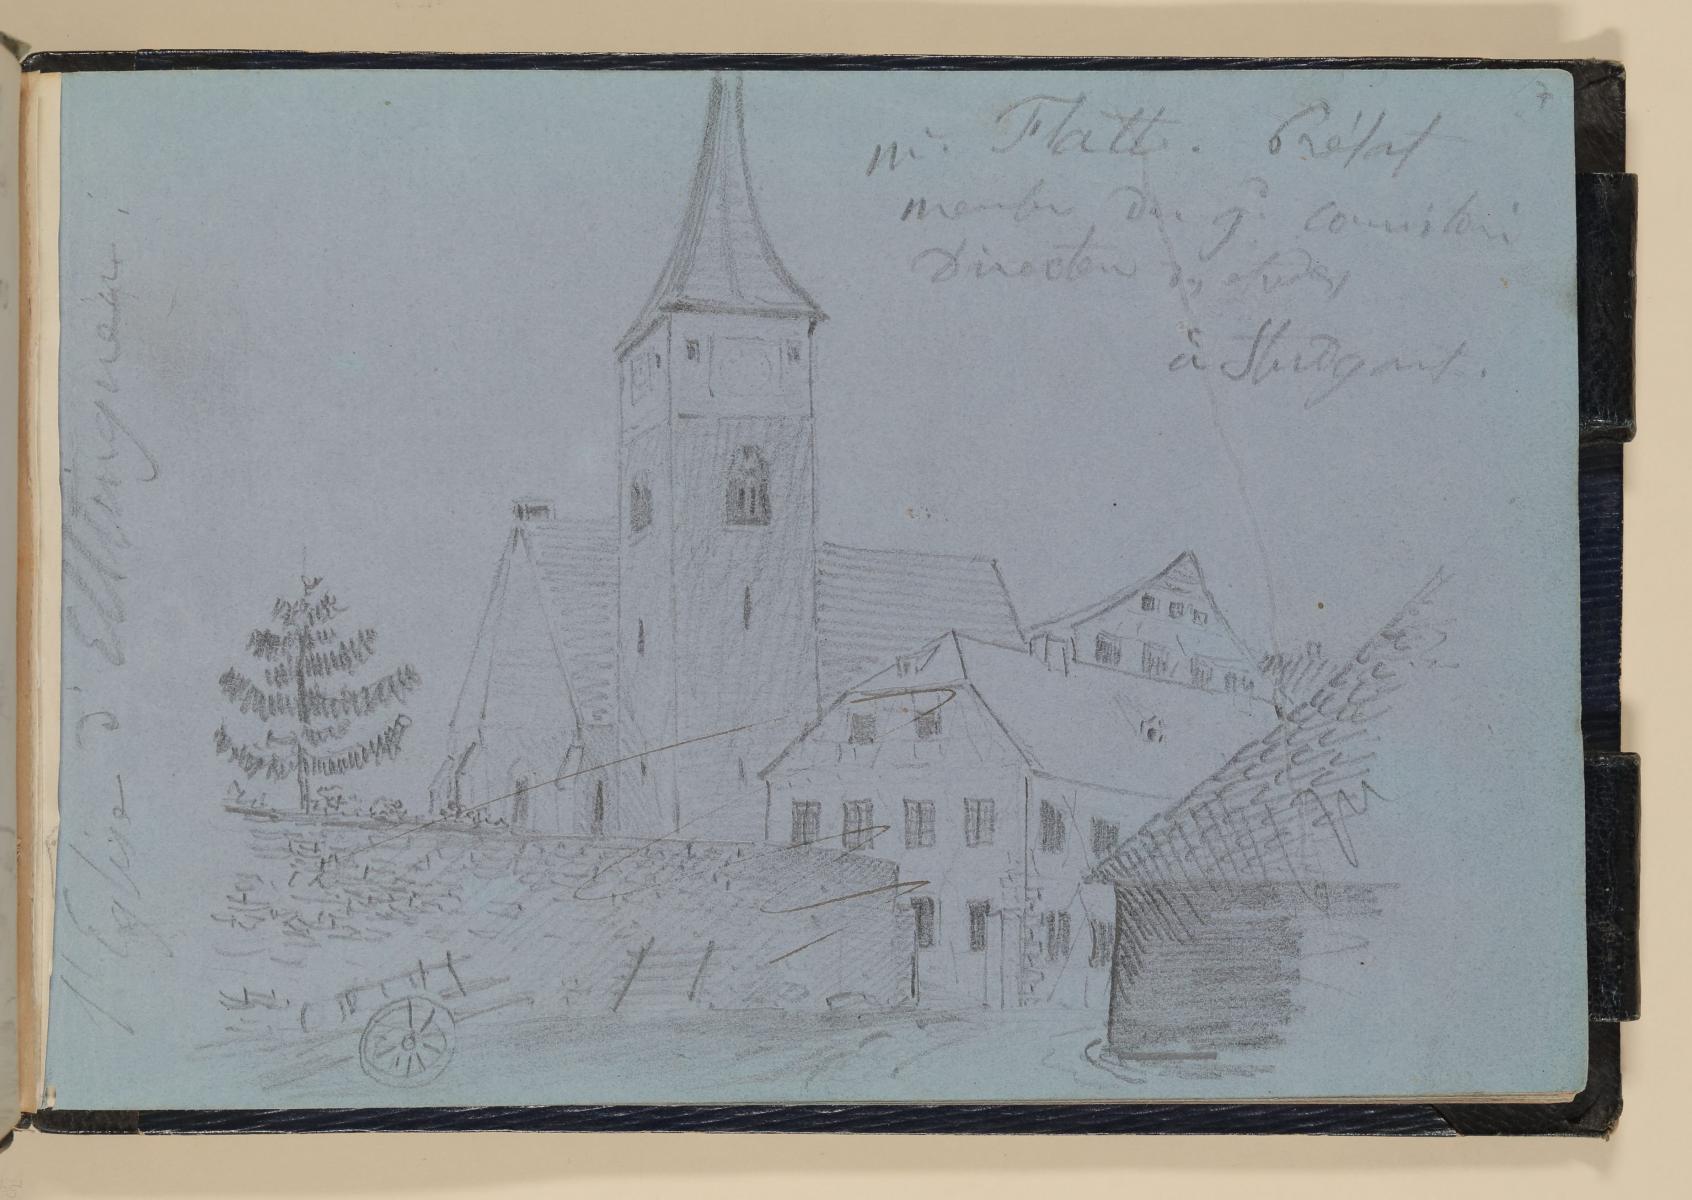 7
Mr. Flatt. Prélat
membre du gd consistori
Directeur des études
à Stuttgart.
l'Eglise d'Eltingen